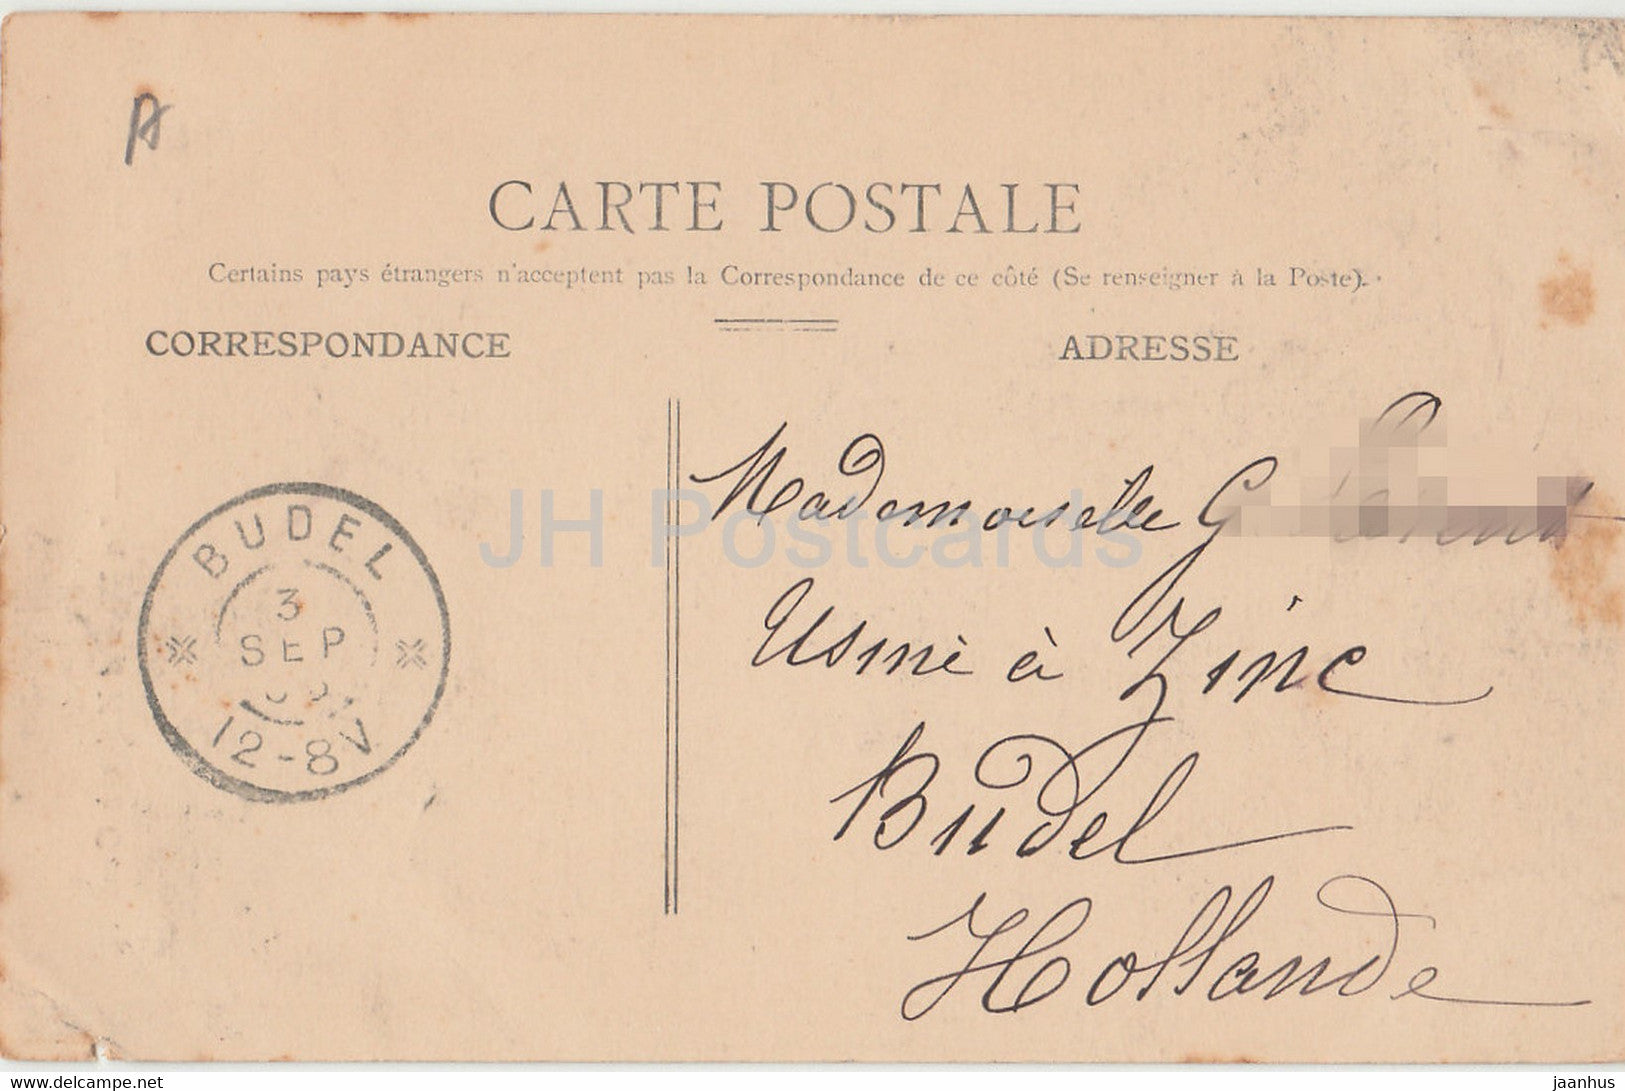 CARTE POSTALE
Certains pays étrangers n'acceptent pas la Correspondance de ce côté (Se renseigner à la Poste).
CORRESPONDANCE
ADRESSE
Mademoiselle G
Usine à Zinc
Budel
Hollande
BUDEL
3
SEP
12-8V
JH Postcards
www.delcampe.net
jaanhus